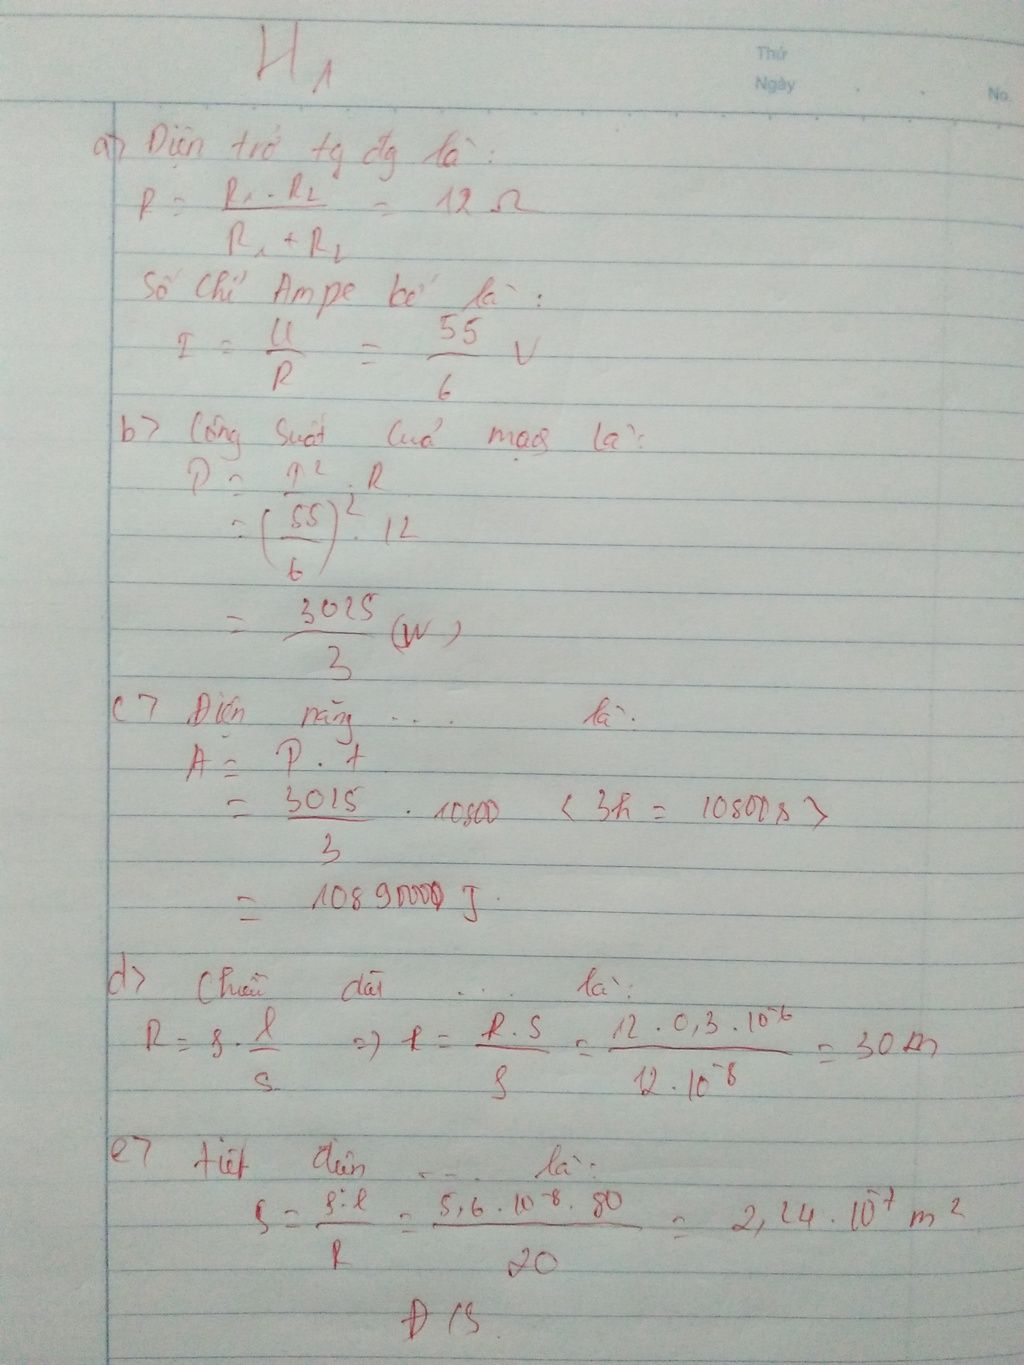 H1
Thứ
Ngày
No.
a> Điện trở tg đg là:
R = R1 . R2 / R1 + R2 = 12 Ω
Số chỉ Ampe kế là:
I = U / R = 55 / 6 V
b> Công suất của mạch là:
P = I² . R
= (55 / 6)² . 12
= 3025 / 3 (W)
c> Điện năng .... là:
A = P . t
= 3025 / 3 . 10800 < 3h = 10800s >
= 10890000 J.
d> Chiều dài ... là:
R = ρ . l / s => l = R . S / ρ = 12 . 0,3 . 10⁻⁶ / 12 . 10⁻⁸ = 30 m
e> tiết diện .... là:
S = ρ . l / R = 5,6 . 10⁻⁸ . 80 / 20 = 2,24 . 10⁻⁷ m²